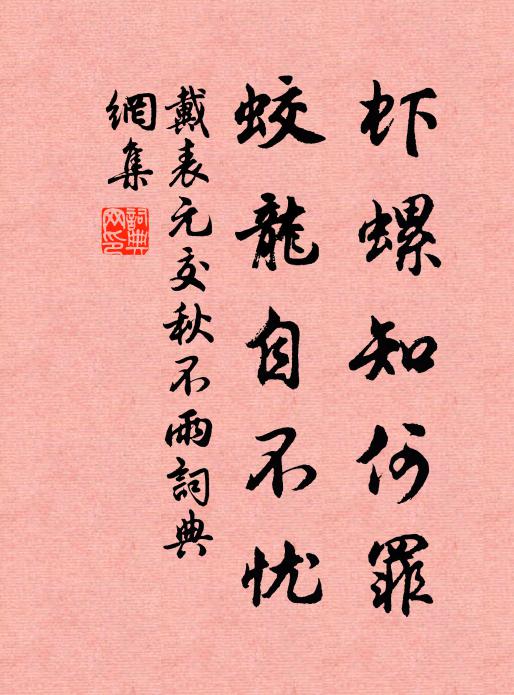 虾螺知何罪
蛟龍自不忧
戴表元交秋不雨詞典
網集
詞典
网印